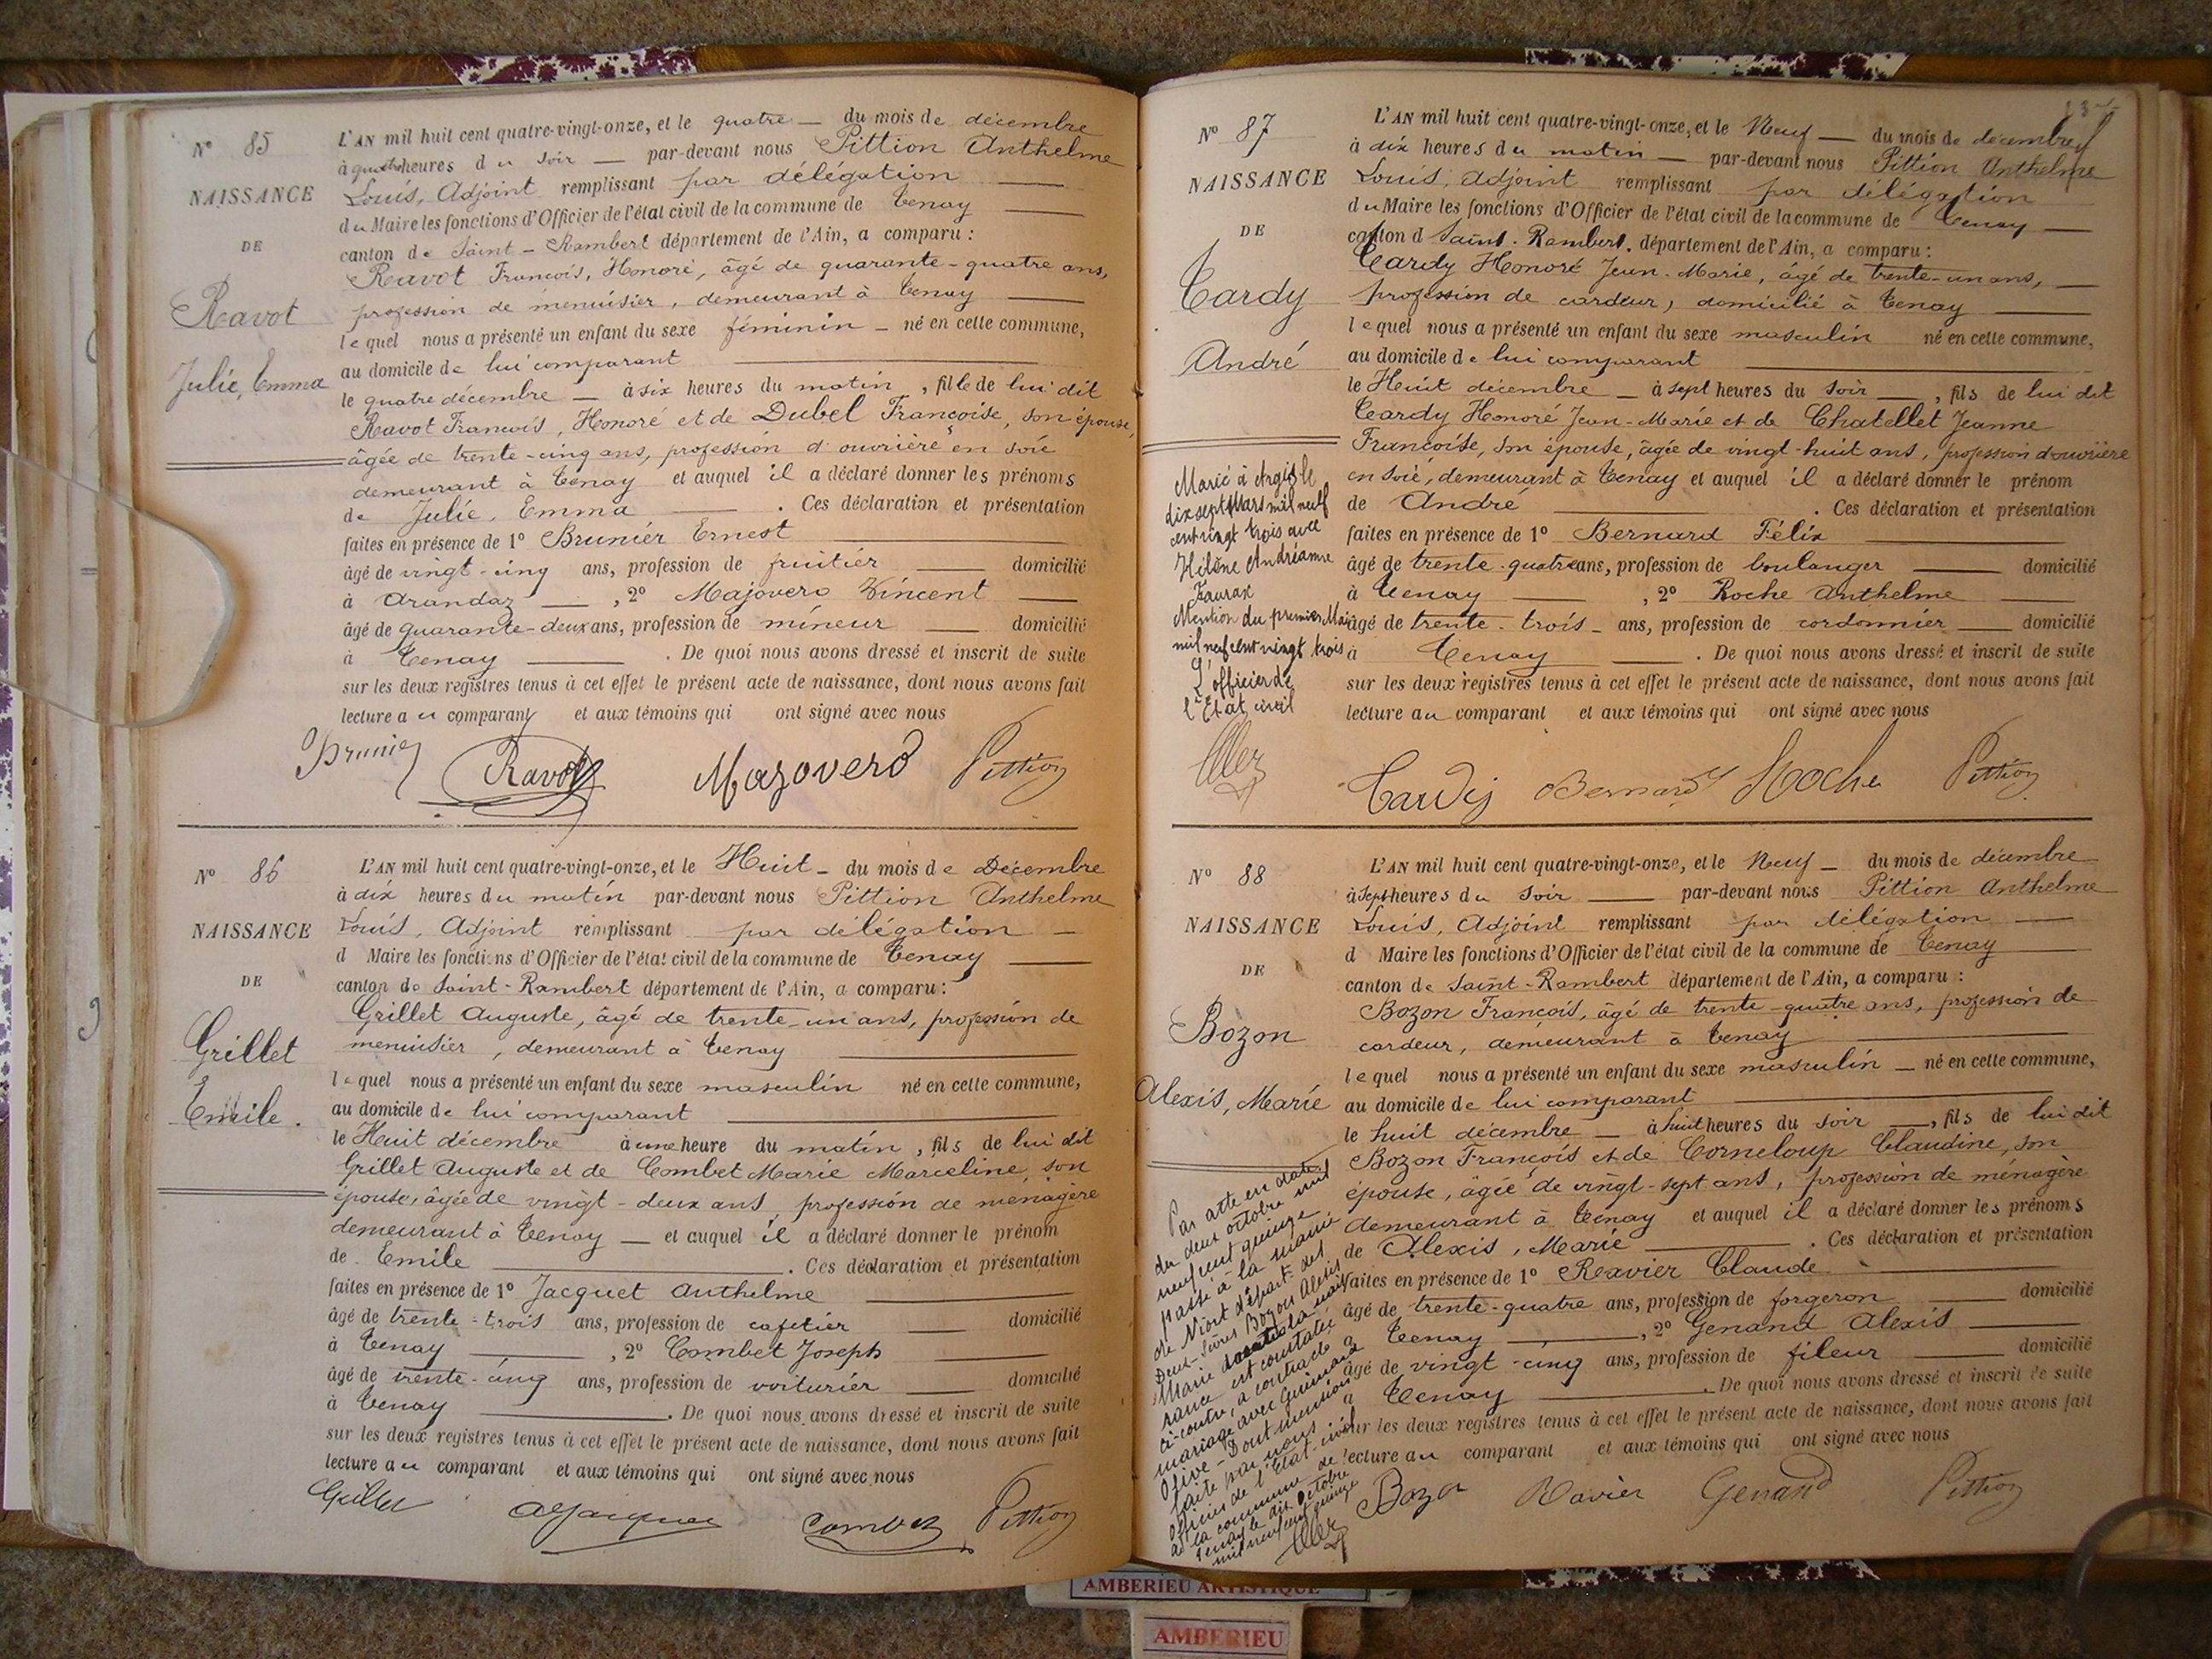 Nº 85
NAISSANCE
DE
Ravot
Julie, Emma
L'AN mil huit cent quatre-vingt-onze, et le quatre — du mois de décembre
à quatre heures du soir — par-devant nous Pittion Anthelme
Louis, Adjoint remplissant par délégation —
du Maire les fonctions d'Officier de l'état civil de la commune de Tenay —
canton de Saint-Rambert département de l'Ain, a comparu :
Ravot François, Honoré, âgé de quarante-quatre ans,
profession de menuisier, demeurant à Tenay —
lequel nous a présenté un enfant du sexe féminin — né en cette commune,
au domicile de lui comparant —
le quatre décembre — à six heures du matin, fille de lui dit
Ravot François, Honoré et de Dubel Françoise, son épouse,
âgée de trente-cinq ans, profession d'ouvrière en soie
demeurant à Tenay et auquel il a déclaré donner les prénoms
de Julie, Emma — . Ces déclaration et présentation
faites en présence de 1º Brunier Ernest —
âgé de vingt-cinq ans, profession de fruitier — domicilié
à Arandaz — , 2º Majovero Vincent —
âgé de quarante-deux ans, profession de mineur — domicilié
à Tenay — . De quoi nous avons dressé et inscrit de suite
sur les deux registres tenus à cet effet le présent acte de naissance, dont nous avons fait
lecture au comparant et aux témoins qui ont signé avec nous
Brunier Ravot Majovero Pittion
Nº 86
NAISSANCE
DE
Grillet
Emile.
L'AN mil huit cent quatre-vingt-onze, et le Huit — du mois de Décembre
à dix heures du matin par-devant nous Pittion Anthelme
Louis, Adjoint remplissant par délégation —
d Maire les fonctions d'Officier de l'état civil de la commune de Tenay —
canton de Saint-Rambert département de l'Ain, a comparu :
Grillet Auguste, âgé de trente-un ans, profession de
menuisier, demeurant à Tenay —
lequel nous a présenté un enfant du sexe masculin né en cette commune,
au domicile de lui comparant —
le Huit décembre à une heure du matin, fils de lui dit
Grillet Auguste et de Combet Marie Marceline, son
épouse, âgée de vingt-deux ans, profession de ménagère
demeurant à Tenay — et auquel il a déclaré donner le prénom
de Emile — . Ces déclaration et présentation
faites en présence de 1º Jacquet Anthelme —
âgé de trente-trois ans, profession de cafetier — domicilié
à Tenay — , 2º Combet Joseph —
âgé de trente-cinq ans, profession de voiturier — domicilié
à Tenay — . De quoi nous avons dressé et inscrit de suite
sur les deux registres tenus à cet effet le présent acte de naissance, dont nous avons fait
lecture au comparant et aux témoins qui ont signé avec nous
Grillet Combet Pittion
Nº 87
NAISSANCE
DE
Tardy
André
L'AN mil huit cent quatre-vingt-onze, et le Neuf — du mois de décembre
à dix heures du matin — par-devant nous Pittion Anthelme
Louis, Adjoint remplissant par délégation
du Maire les fonctions d'Officier de l'état civil de la commune de Tenay —
canton d Saint-Rambert, département de l'Ain, a comparu :
Tardy Honoré Jean-Marie, âgé de trente-un ans, —
profession de cardeur, domicilié à Tenay —
lequel nous a présenté un enfant du sexe masculin né en cette commune,
au domicile de lui comparant —
le Huit décembre — à sept heures du soir — , fils de lui dit
Tardy Honoré Jean-Marie et de Chatellet Jeanne
Françoise, son épouse, âgée de vingt-huit ans, profession d'ouvrière
en soie, demeurant à Tenay et auquel il a déclaré donner le prénom
de André — . Ces déclaration et présentation
faites en présence de 1º Bernard Félix —
âgé de trente-quatre ans, profession de boulanger — domicilié
à Tenay — , 2º Roche Anthelme —
âgé de trente-trois — ans, profession de cordonnier — domicilié
à Tenay — . De quoi nous avons dressé et inscrit de suite
sur les deux registres tenus à cet effet le présent acte de naissance, dont nous avons fait
lecture au comparant et aux témoins qui ont signé avec nous
Marié à Argis le
dix sept Mars mil neuf
cent vingt trois avec
Hélène Andréanne
Faurax
Mention du premier Mai
mil neuf cent vingt trois
L'officier de
l'Etat civil
Tardy Bernard Roche Pittion
Nº 88
NAISSANCE
DE
Bozon
Alexis, Marie
L'AN mil huit cent quatre-vingt-onze, et le Neuf — du mois de décembre
à sept heures du soir — par-devant nous Pittion Anthelme
Louis, Adjoint remplissant par délégation —
d Maire les fonctions d'Officier de l'état civil de la commune de Tenay
canton de Saint-Rambert département de l'Ain, a comparu :
Bozon François, âgé de trente-quatre ans, profession de
cardeur, demeurant à Tenay —
lequel nous a présenté un enfant du sexe masculin — né en cette commune,
au domicile de lui comparant —
le huit décembre — à huit heures du soir — , fils de lui dit
Bozon François et de Corneloup Claudine, son
épouse, âgée de vingt-sept ans, profession de ménagère
demeurant à Tenay et auquel il a déclaré donner les prénoms
de Alexis, Marie — . Ces déclaration et présentation
faites en présence de 1º Ravier Claude —
âgé de trente-quatre ans, profession de forgeron — domicilié
à Tenay — , 2º Genand Alexis —
âgé de vingt-cinq ans, profession de fileur — domicilié
à Tenay — . De quoi nous avons dressé et inscrit de suite
sur les deux registres tenus à cet effet le présent acte de naissance, dont nous avons fait
lecture au comparant et aux témoins qui ont signé avec nous
Par acte en date
du deux octobre mil
neuf cent quinze
passé à la mairie
de Niort départ. des
Deux-Sèvres Bozon Alexis
Marie dont la nais
sance est constatée
ci-contre, a contracté
mariage avec Guimard
Olive - Dont mention
faite par nous
officier de l'Etat civil
de la commune de
Tenay le dix Octobre
mil neuf cent quinze
Bozon Ravier Genand Pittion
AMBERIEU ARTISTIQUE
AMBERIEU